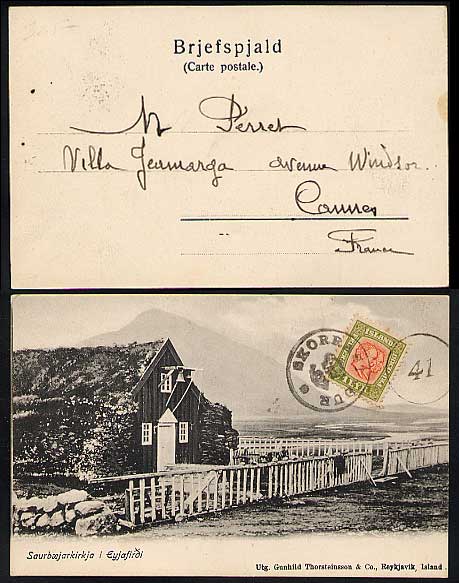 Brjefspjald
(Carte postale.)
M Perret
Villa Jeamarga avenue Windsor
Cannes
France
ISLAND
41
Saurbæjarkirkja i Eyjafirði
Utg. Gunhild Thorsteinsson & Co., Reykjavik, Island.